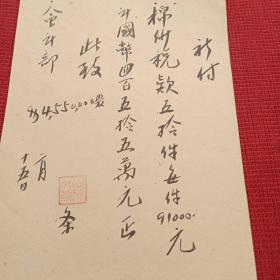 祈付
棉州税款五拾件每件91000.元
計國幣四百五拾五萬元正
此致
會計部
$4,550,000.00
二月
十五日
条